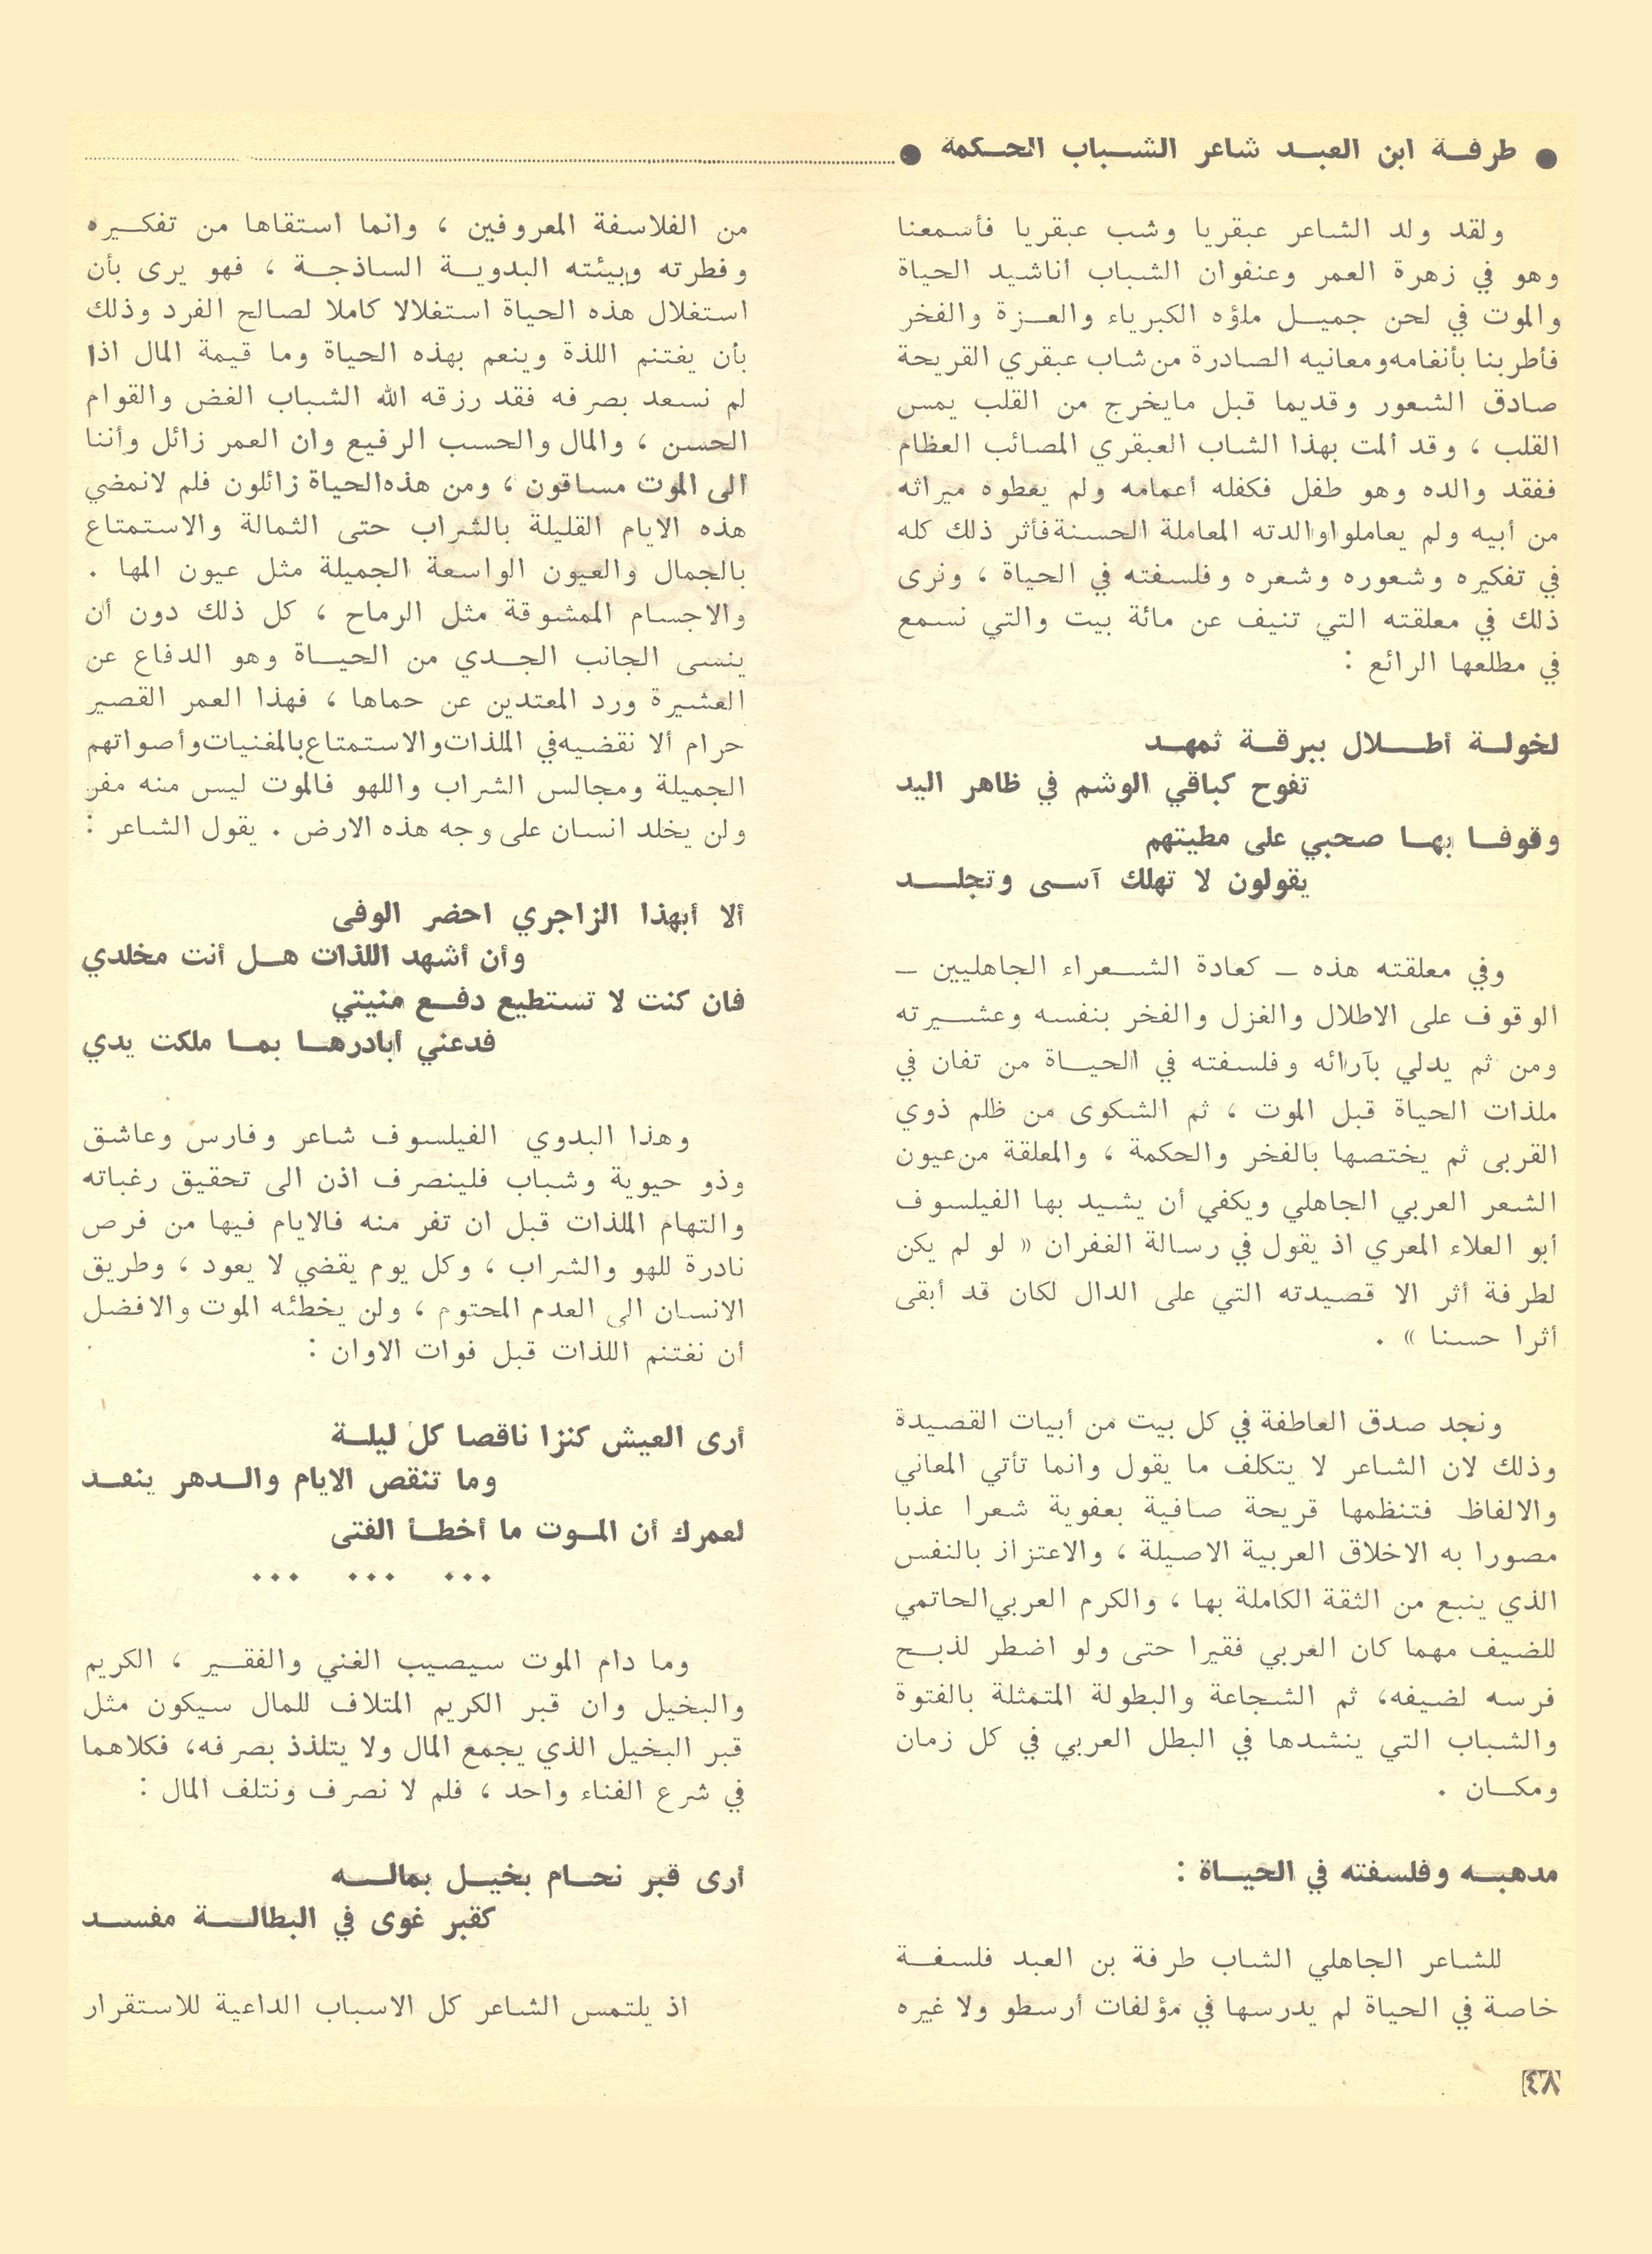 ● طرفة ابن العبد شاعر الشباب الحكمة ●
ولقد ولد الشاعر عبقريا وشب عبقريا فأسمعنا
وهو في زهرة العمر وعنفوان الشباب أناشيد الحياة
والموت في لحن جميل ملؤه الكبرياء والعزة والفخر
فأطربنا بأنغامه ومعانيه الصادرة من شاب عبقري القريحة
صادق الشعور وقديما قبل مايخرج من القلب يمس
القلب ، وقد ألمت بهذا الشاب العبقري المصائب العظام
ففقد والده وهو طفل فكفله أعمامه ولم يعطوه ميراثه
من أبيه ولم يعاملوا والدته المعاملة الحسنة فأثر ذلك كله
في تفكيره وشعوره وشعره وفلسفته في الحياة ، ونرى
ذلك في معلقته التي تنيف عن مائة بيت والتي نسمع
في مطلعها الرائع :
لخولة أطلال ببرقة ثمهد
تفوح كباقي الوشم في ظاهر اليد
وقوفا بها صحبي على مطيتهم
يقولون لا تهلك آسى وتجلد
وفي معلقته هذه – كعادة الشعراء الجاهليين –
الوقوف على الاطلال والغزل والفخر بنفسه وعشيرته
ومن ثم يدلي بآرائه وفلسفته في الحياة من تفان في
ملذات الحياة قبل الموت ، ثم الشكوى من ظلم ذوي
القربى ثم يختصها بالفخر والحكمة ، والمعلقة من عيون
الشعر العربي الجاهلي ويكفي أن يشيد بها الفيلسوف
أبو العلاء المعري اذ يقول في رسالة الغفران « لو لم يكن
لطرفة أثر الا قصيدته التي على الدال لكان قد أبقى
أثرا حسنا » .
ونجد صدق العاطفة في كل بيت من أبيات القصيدة
وذلك لان الشاعر لا يتكلف ما يقول وانما تأتي المعاني
والالفاظ فتنظمها قريحة صافية بعفوية شعرا عذبا
مصورا به الاخلاق العربية الاصيلة ، والاعتزاز بالنفس
الذي ينبع من الثقة الكاملة بها ، والكرم العربي الحاتمي
للضيف مهما كان العربي فقيرا حتى ولو اضطر لذبح
فرسه لضيفه، ثم الشجاعة والبطولة المتمثلة بالفتوة
والشباب التي ينشدها في البطل العربي في كل زمان
ومكان .
مدهبه وفلسفته في الحياة :
للشاعر الجاهلي الشاب طرفة بن العبد فلسفة
خاصة في الحياة لم يدرسها في مؤلفات أرسطو ولا غيره
من الفلاسفة المعروفين ، وانما استقاها من تفكيره
وفطرته وبيئته البدوية الساذجة ، فهو يرى بأن
استغلال هذه الحياة استغلالا كاملا لصالح الفرد وذلك
بأن يغتنم اللذة وينعم بهذه الحياة وما قيمة المال اذا
لم نسعد بصرفه فقد رزقه الله الشباب الغض والقوام
الحسن ، والمال والحسب الرفيع وان العمر زائل وأننا
الى الموت مساقون ، ومن هذه الحياة زائلون فلم لانمضي
هذه الايام القليلة بالشراب حتى الثمالة والاستمتاع
بالجمال والعيون الواسعة الجميلة مثل عيون المها .
والاجسام الممشوقة مثل الرماح ، كل ذلك دون أن
ينسى الجانب الجدي من الحياة وهو الدفاع عن
العشيرة ورد المعتدين عن حماها ، فهذا العمر القصير
حرام ألا نقضيه في الملذات والاستمتاع بالمغنيات وأصواتهم
الجميلة ومجالس الشراب واللهو فالموت ليس منه مفر
ولن يخلد انسان على وجه هذه الارض . يقول الشاعر :
ألا أبهذا الزاجري احضر الوفى
وأن أشهد اللذات هل أنت مخلدي
فان كنت لا تستطيع دفع منيتي
فدعني أبادرها بما ملكت يدي
وهذا البدوي الفيلسوف شاعر وفارس وعاشق
وذو حيوية وشباب فلينصرف اذن الى تحقيق رغباته
والتهام الملذات قبل ان تفر منه فالايام فيها من فرص
نادرة للهو والشراب ، وكل يوم يقضي لا يعود ، وطريق
الانسان الى العدم المحتوم ، ولن يخطئه الموت والافضل
أن نغتنم اللذات قبل فوات الاوان :
أرى العيش كنزا ناقصا كل ليلة
وما تنقص الايام والدهر ينعد
لعمرك أن الموت ما أخطأ الفتى
... ... ...
وما دام الموت سيصيب الغني والفقير ، الكريم
والبخيل وان قبر الكريم المتلاف للمال سيكون مثل
قبر البخيل الذي يجمع المال ولا يتلذذ بصرفه، فكلاهما
في شرع الفناء واحد ، فلم لا نصرف ونتلف المال :
أرى قبر نحام بخيل بماله
كقبر غوى في البطالة مفسد
اذ يلتمس الشاعر كل الاسباب الداعية للاستقرار
٨٤